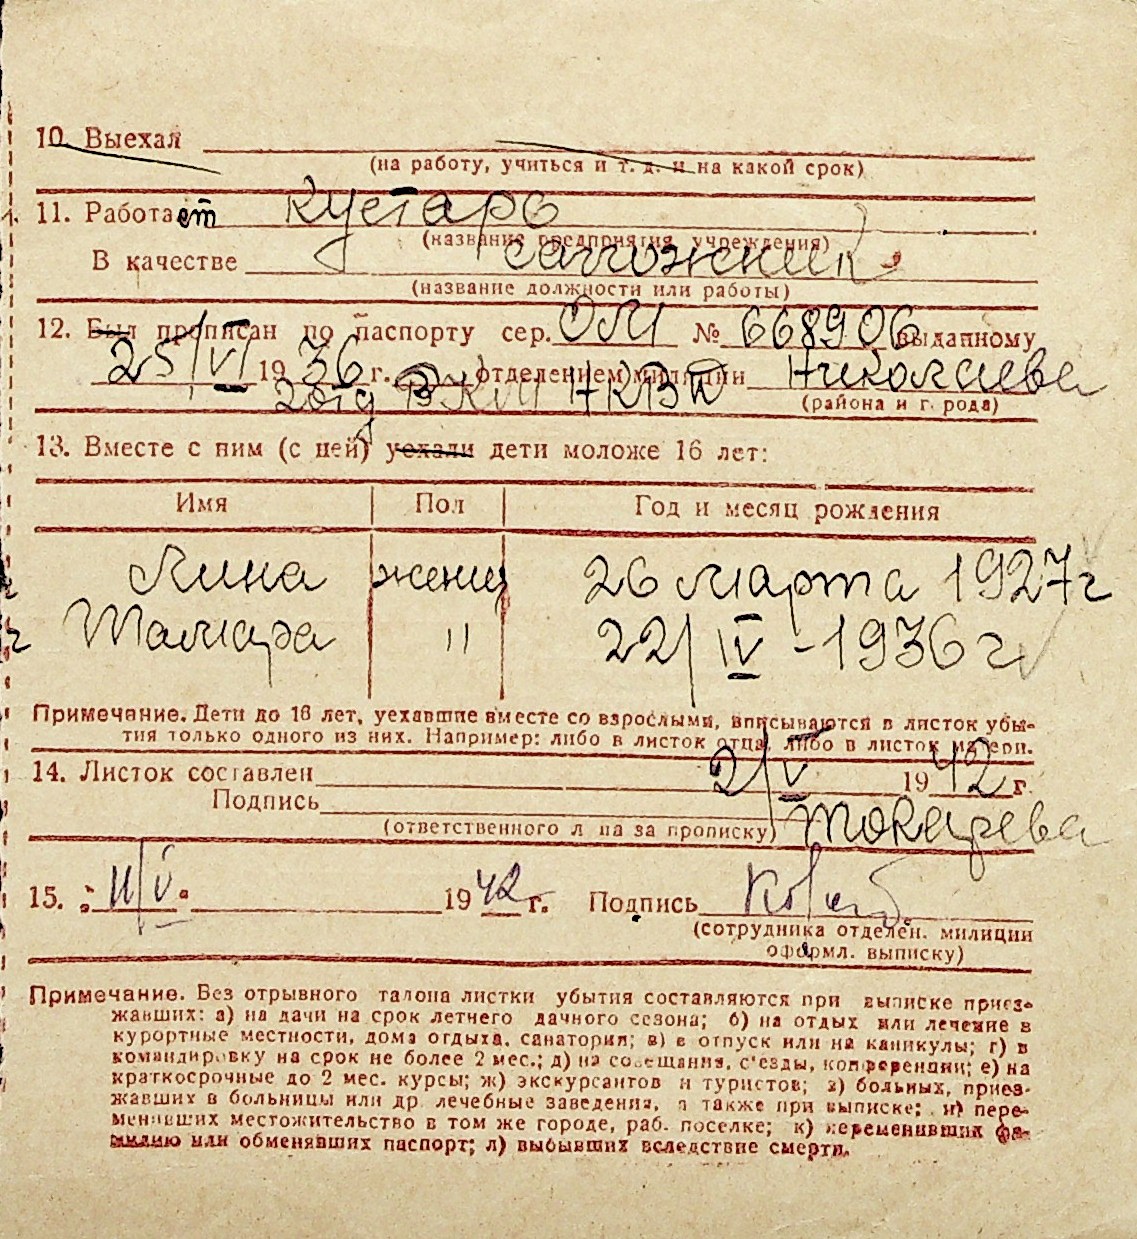 10. Выехал
(на работу, учиться и т. д. и на какой срок)
11. Работает Кустарь
(название предприятия, учреждения)
В качестве сапожник
(название должности или работы)
12. Был прописан по паспорту сер. ОМ № 668906 выданному
25/VI 1936 г. отделением милиции Николаева
2 отд РКМ НКВД (района и города)
13. Вместе с ним (с ней) уехали дети моложе 16 лет:
Имя Пол Год и месяц рождения
Лина женщ 26 марта 1927 г
Тамара " 22/IV - 1936 г
Примечание. Дети до 16 лет, уехавшие вместе со взрослыми, вписываются в листок убы-
тия только одного из них. Например: либо в листок отца, либо в листок матери.
14. Листок составлен 2/V 1942 г.
Подпись Токарева
(ответственного лица за прописку)
15. 11/V. 1942 г. Подпись
(сотрудника отделен. милиции
оформл. выписку)
Примечание. Без отрывного талона листки убытия составляются при выписке приез-
жавших: а) на дачи на срок летнего дачного сезона; б) на отдых или лечение в
курортные местности, дома отдыха, санатории; в) в отпуск или на каникулы; г) в
командировку на срок не более 2 мес.; д) на совещания, с'езды, конференции; е) на
краткосрочные до 2 мес. курсы; ж) экскурсантов и туристов; з) больных, приез-
жавших в больницы или др. лечебные заведения, а также при выписке; и) пере-
менивших местожительство в том же городе, раб. поселке; к) переменивших фа-
милию или обменявших паспорт; л) выбывших вследствие смерти.